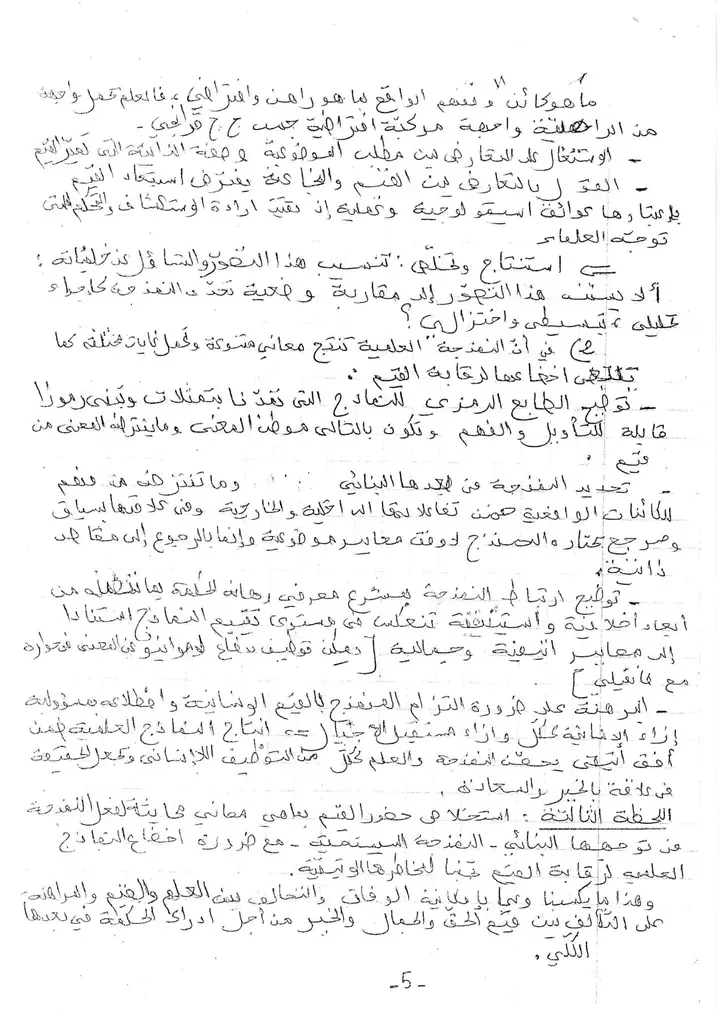 ما هو كائن" وتفهم الواقع بما هو راهن وافتراضي، فالعلم يحمل واجهة
من الراهنية واجهة مركبة افتراضية حسب ج ج قرانجي.
- الاشتغال على التعارض بين مطلب الموضوعية وصفة الذاتية التي تميز القيم
- القول بالتعارض بين القيم والنمذجة يفترض استبعاد القيم
باعتبارها عوائق ابستمولوجية وعملية إذ تقيد إرادة الاستكشاف والحكم التي
توجه العلماء
=> استنتاج وتخلص: تنسيب هذا التصور والتساؤل عن خلفياته:
ألا يستند هذا التصور إلى مقاربة وضعية تحدد النمذجة كإجراء
تحليلي، تبسيطي واختزالي؟
2) في أن النمذجة العلمية تنتج معاني متنوعة وتحمل غايات مختلفة كما
يقتضي اخضاعها لرقابة القيم:
- توضيح الطابع الرمزي للنماذج التي تمدنا بتمثلات وتبني رموزا
قابلة للتأويل والفهم وتكون بالتالي موطن المعنى وما يفترضه المعنى من
قيم.
- تحديد النمذجة في بعدها البنائي وما تفترضه من فهم
للكائنات الواقعية ضمن تفاعلاتها الداخلية والخارجية وفي علاقتها بسياق
ومرجع يختاره المنمذج لا وفق معايير موضوعية وإنما بالرجوع إلى مقاصد
ذاتية.
- توضيح ارتباط النمذجة بمشروع معرفي رهانه الحكمة بما تتضمنه من
أبعاد أخلاقية واستيتيقية تنعكس في مستوى تقييم النماذج استنادا
إلى معايير اتيقية وجمالية [يمكن توظيف دفاع لوموانيو عن المعنى في حواره
مع فانفيلي]
- البرهنة على ضرورة التزام المنمذج بالقيم الإنسانية واضطلاعه بمسؤولية
إزاء الإنسانية ككل وإزاء مستقبل الأجيال => انتاج النماذج العلمية ضمن
أفق اتيقي يحصن النمذجة والعلم ككل من التوظيف اللاإنساني ويجعل الحقيقة
في علاقة بالخير والسعادة.
اللحظة الثالثة: استخلاص حضور القيم بما هي معاني محايثة لفعل النمذجة
في توجهها البنائي - النمذجة النسقية - مع ضرورة اخضاع النماذج
العلمية لرقابة القيم تجنبا لمخاطرها الإيتيقية.
وهذا ما يكسبنا وعيا بإمكانية الوفاق والتحالف بين العلم والقيم والمراهنة
على التآلف بين قيم الحق والجمال والخير من أجل ادراك الحكمة في بعدها
الكلي.
-5-